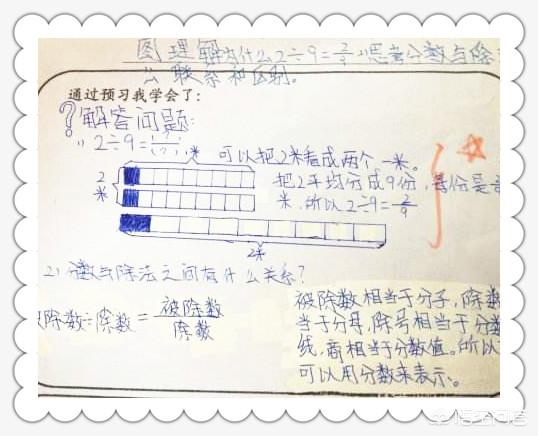 图理解为什么2÷9=2/9,思考分数与除
么联系和区别。
通过预习我学会了:
?解答问题:
1)2÷9=( )米
可以把2米看成两个一米。
2米
把2平均分成9份,每份是
米,所以2÷9=2/9
2米
2)分数与除法之间有什么关系?
除数÷除数=被除数/除数
被除数相当于分子,除数
当于分母,除号相当于分数
线,商相当于分数值。所以
可以用分数来表示。